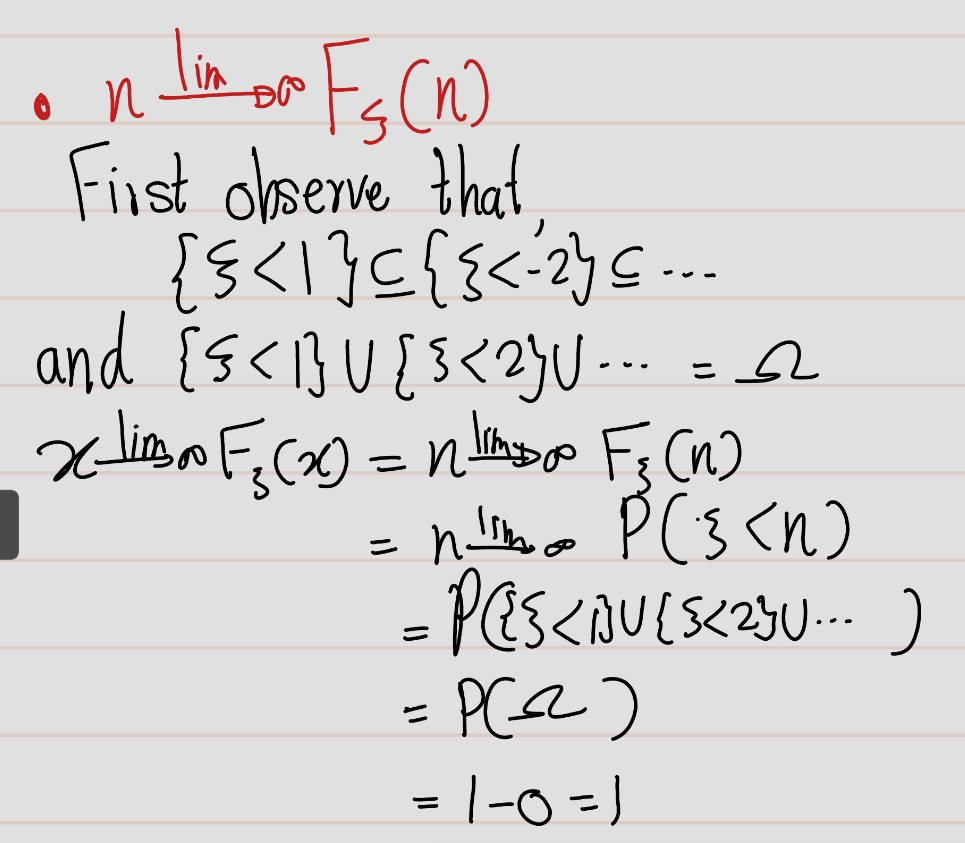 • n lim→∞ F_ξ(n)
First observe that,
{ξ<1}⊆{ξ<-2}⊆ ...
and {ξ<1}∪{ξ<2}∪... = Ω
x lim→∞ F_ξ(x) = n lim→∞ F_ξ(n)
= n lim→∞ P(ξ<n)
= P({ξ<1}∪{ξ<2}∪... )
= P(Ω)
= 1-0=1